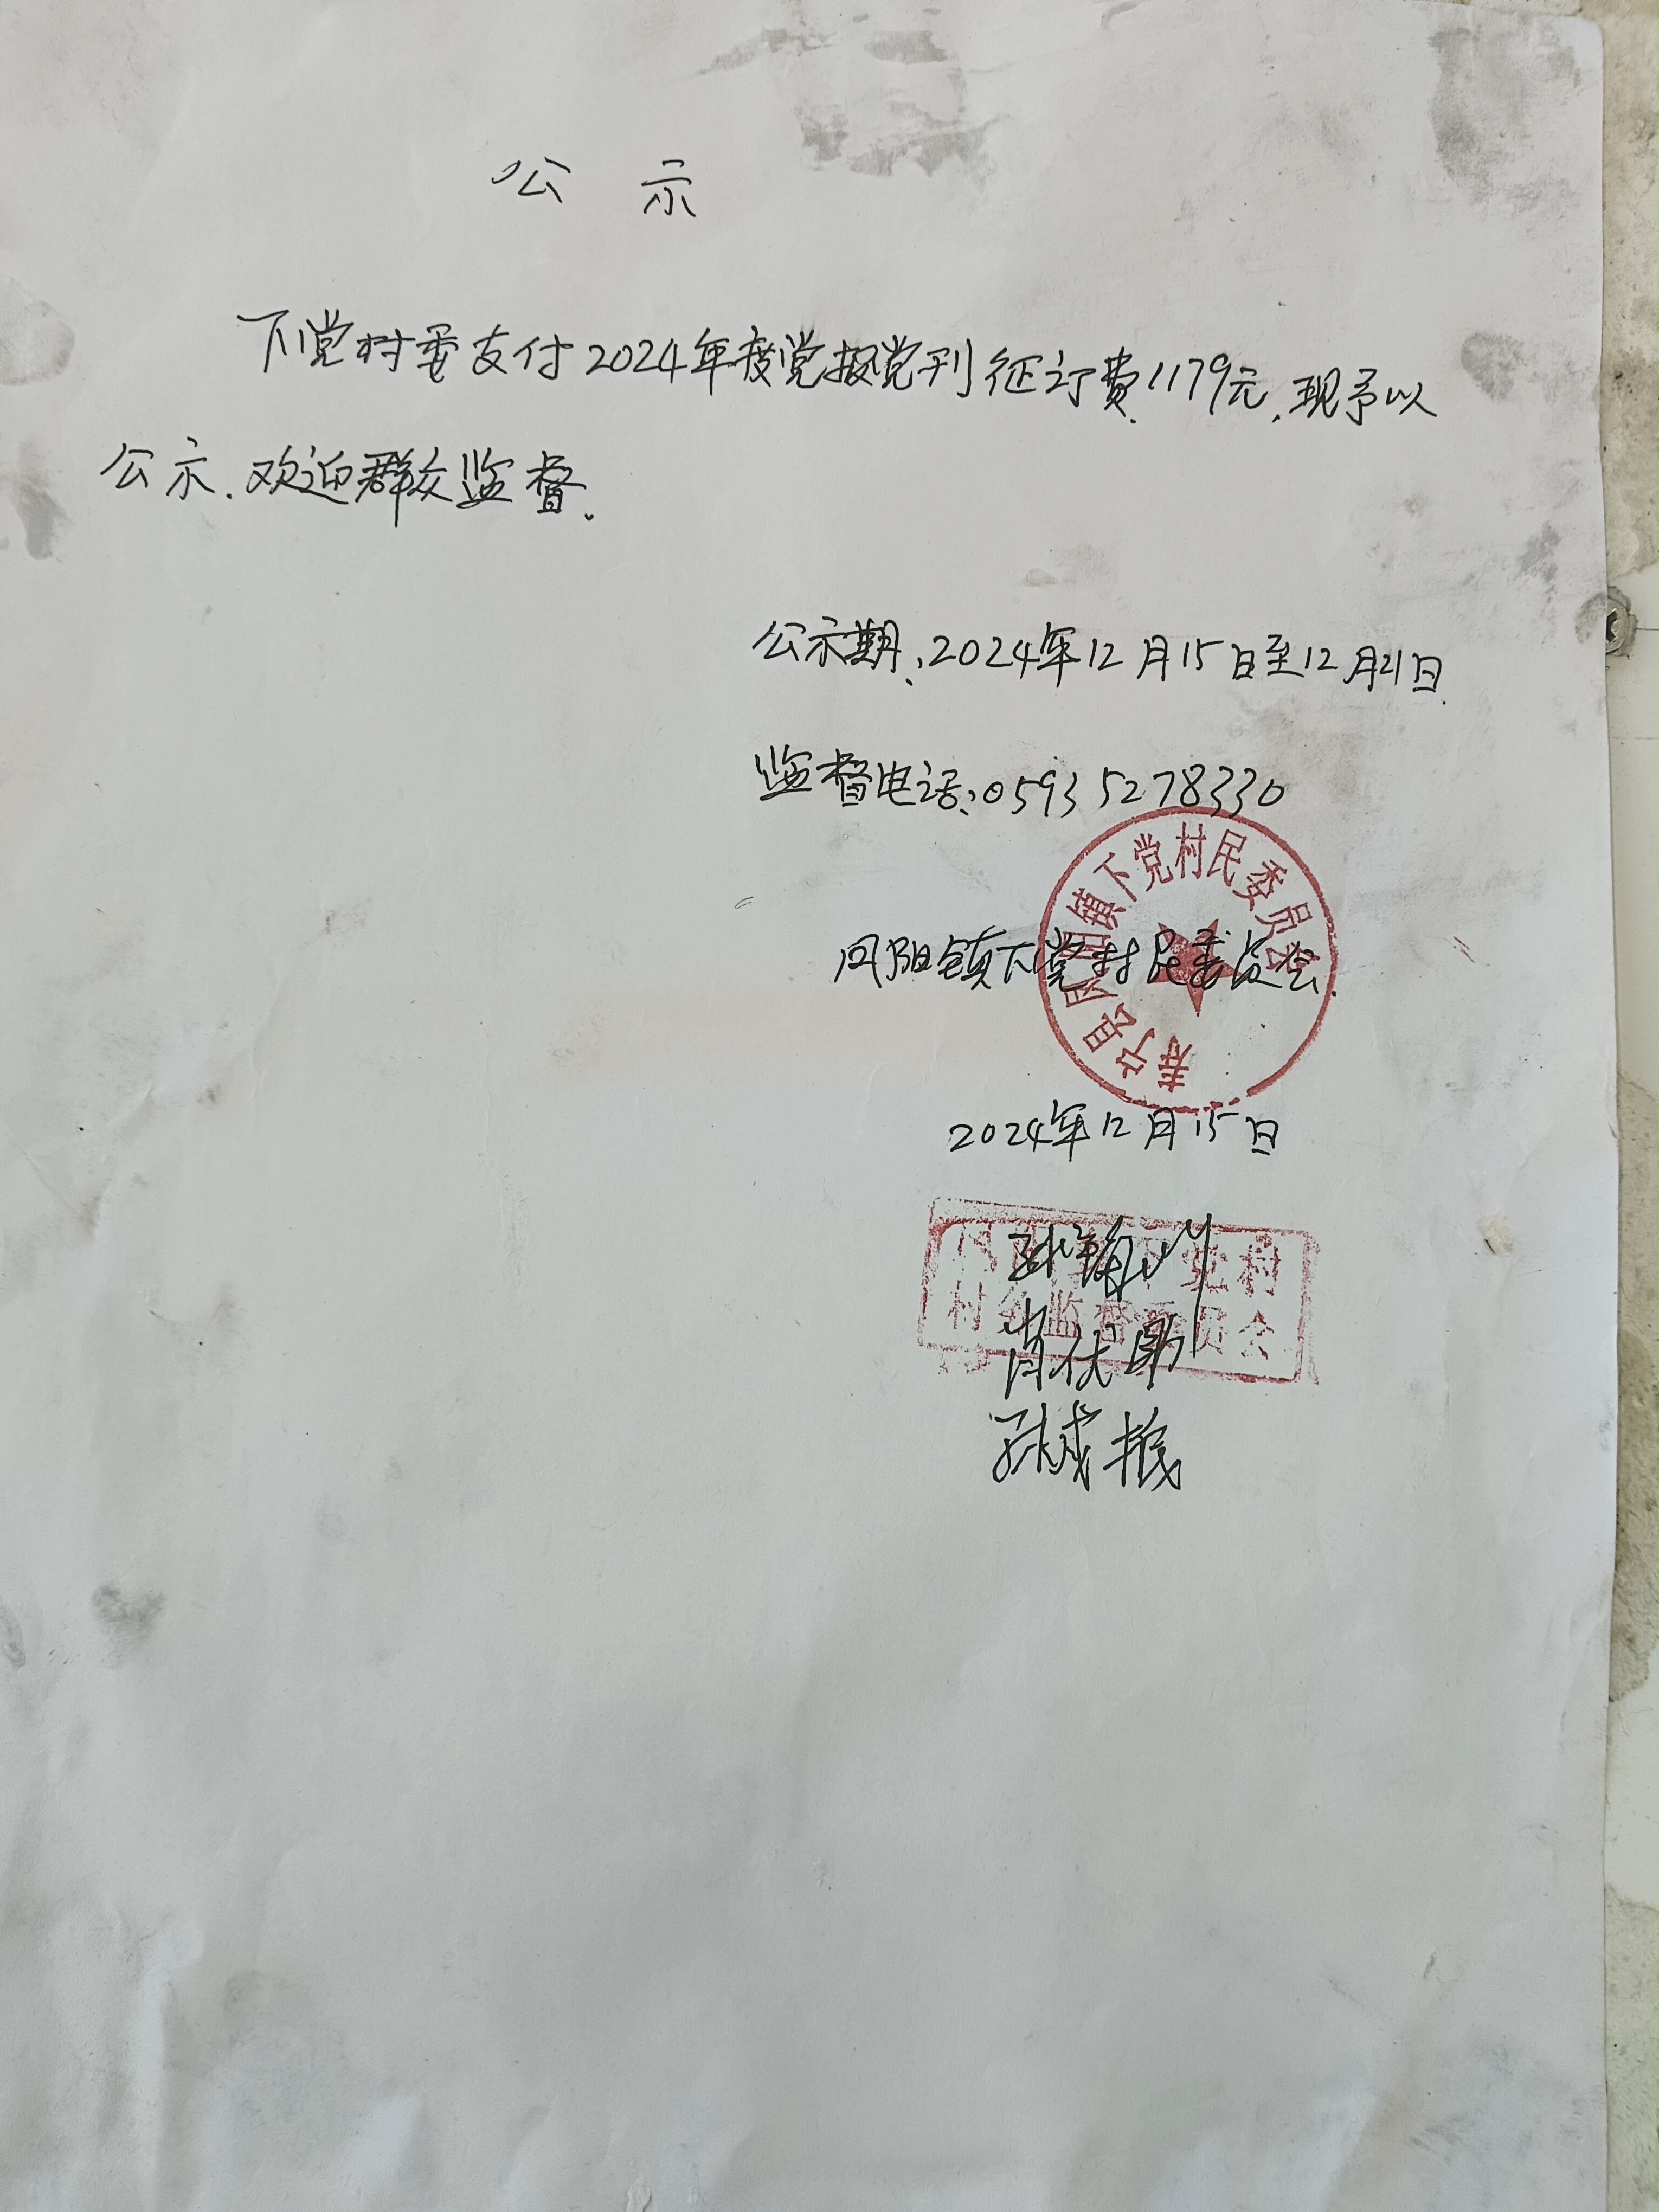 公示
下党村委支付2024年度党报党刊征订费1179元.现予以
公示.欢迎群众监督.
公示期:2024年12月15日至12月21日.
监督电话:0593 5278330
寿宁县凤阳镇下党村民委员会
凤阳镇下党村民委员会.
2024年12月15日
党村
村务监督委员会